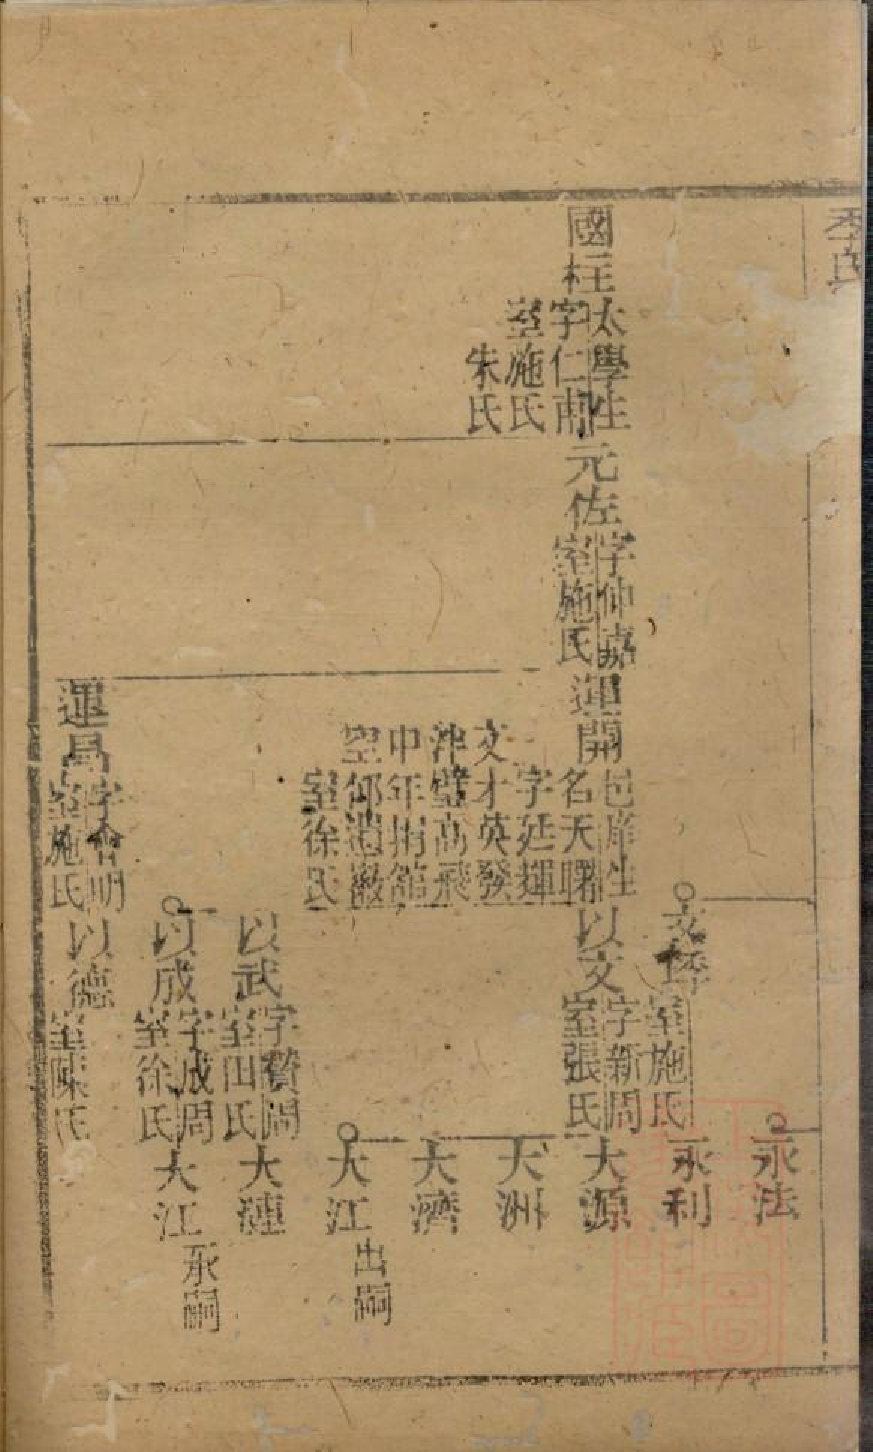 季氏
國柱
太學生
字仁甫
室施氏
朱氏
元佐
字仲嘉
室施氏
運開
邑庠生
名天曙
字廷揮
文才英發
沖霄高飛
中年捐館
空仰遺徽
室徐氏
運昌
字會明
室施氏
文
室施氏
以文
字新周
室張氏
以武
字贊周
室田氏
以成
字成周
室徐氏
以德
室陳氏
永法
永利
大源
大洲
大濟
大江
出嗣
大漣
大江
承嗣